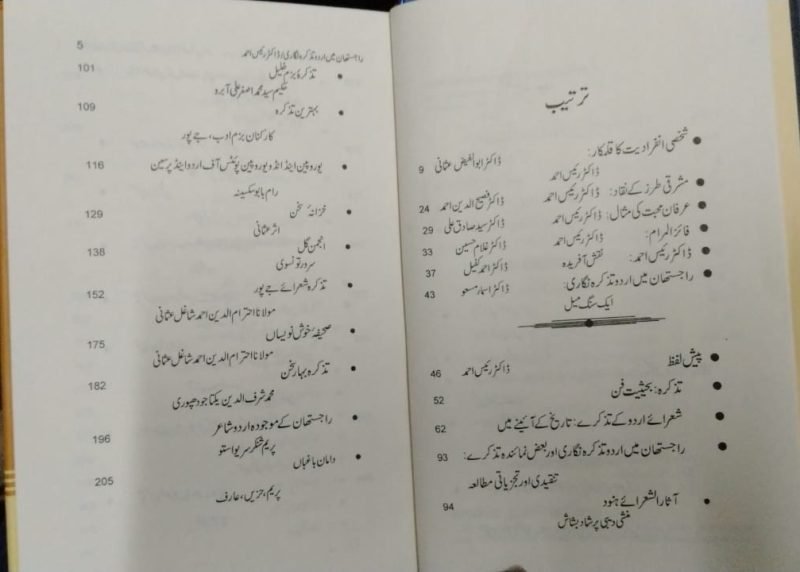 ترتیب
شخصی انفرادیت کا قلمکار:
ڈاکٹر رئیس احمد ڈاکٹر ابوالفیض عثمانی 9
مشرقی طرز کے نقاد: ڈاکٹر رئیس احمد ڈاکٹر فصیح الدین احمد 24
عرفان محبت کی مثال: ڈاکٹر رئیس احمد ڈاکٹر سید صادق علی 29
فائز المرام: ڈاکٹر رئیس احمد ڈاکٹر غلام حسین 33
ڈاکٹر رئیس احمد: نقش آفریدہ ڈاکٹر احمد کفیل 37
راجستھان میں اردو تذکرہ نگاری: ڈاکٹر اسماء مسعود 43
ایک سنگ میل
پیش لفظ ڈاکٹر رئیس احمد 46
تذکرہ: بحیثیت فن 52
شعرائے اردو کے تذکرے: تاریخ کے آئینے میں 62
راجستھان میں اردو تذکرہ نگاری اور بعض نمائندہ تذکرے: 93
تنقیدی اور تجزیاتی مطالعہ
آثار الشعرائے ہنود 94
منشی دیبی پرشاد بشاش
راجستھان میں اردو تذکرہ نگاری / ڈاکٹر رئیس احمد 5
تذکرۂ بزم خلیل 101
حکیم سید محمد اصغر علی آبرو
بہترین تذکرہ 109
کارکنان بزم ادب، جے پور
یوروپین اینڈ انڈو یوروپین پوئٹس آف اردو اینڈ پرسین 116
رام بابو سکسینہ
خزانۂ سخن 129
اثر عثمانی
انجمن گل 138
سرور تونسوی
تذکرہ شعرائے جے پور 152
مولانا احترام الدین احمد شاغل عثمانی
صحیفۂ خوش نویساں 175
مولانا احترام الدین احمد شاغل عثمانی
تذکرہ بہار سخن 182
محمد شرف الدین یکتا جودھپوری
راجستھان کے موجودہ اردو شاعر 196
پریم شنکر سریواستو
دامان باغباں 205
پریم، حزیں، عارف